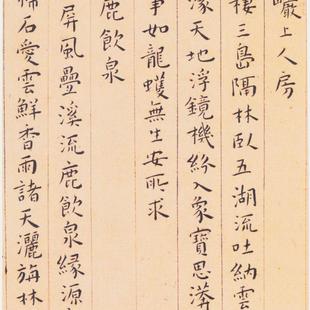 巖上人房
樓三島隔林臥五湖流吐納雲
濛天地浮鏡機紛入象寶思莽
事如龍蠖無生安所求
鹿飲泉
屏風疊溪流鹿飲泉緣源
稀石愛雲鮮香雨諸天灑旃林